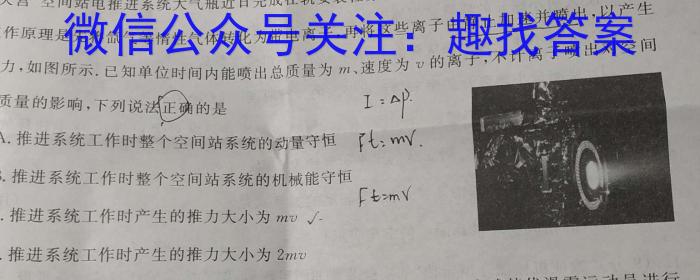 天宫"空间站电推进系统大气瓶近日完成在轨安装
微信公众号关注：趣找答案
力,如图所示.已知单位时间内能喷出总质量为 m、速度为 v 的离子,不计离子喷出对空间
质量的影响,下列说法正确的是
I = Δp.
A. 推进系统工作时整个空间站系统的动量守恒
Ft = mv.
. 推进系统工作时整个空间站系统的机械能守恒
Ft = mv
. 推进系统工作时产生的推力大小为 mv ✓
. 推进系统工作时产生的推力大小为 2mv